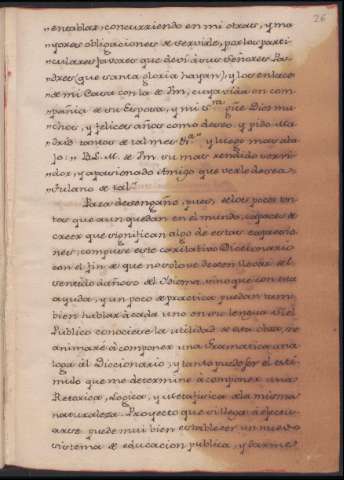 26
"entablar; concurriendo en mi otras, y ma
"yores obligaciones de servirle, por los parti-
"culares favores que devi à sus Señores Pa-
"dres (que santa gloria hayan), y los enlaces
"de mi Casa con la de Vm, cuya vida en com-
"pañia de su Esposa, y mi Sra gue Dios mu-
"chos, y felices años como deseo, y pido. Ma-
"drid tantos de tal mes &a" y luego mas aba
jo: "B.L.M. de Vm su mas rendido servi-
"dor, y apasionado Amigo que verle desea=
"Fulano de tal."
Para desengaño, pues, de los pocos ton-
tos que aun quedan en el mundo, capaces de
creer que significan algo de estas expresio-
nes, compuse este caritativo Diccionario
con el fin de que no solo se dexen llevar del
sentido dañoso del Idioma, sino que con esta
ayuda, y un poco de practica, puedan tam-
bien hablar à cada uno en su lengua. Si el
Publico conociere la utilidad de esta obra, me
animaré à componer una Gramatica ana-
loga àl Diccionario, y tanto puede ser el esti-
mulo que me determine à componer una
Retorica, Logica, y Metafisica de la misma
naturaleza. Proyecto que si llega à efectu-
arse puede mui bien establecer un nuevo
sistema de educacion publica, y darme